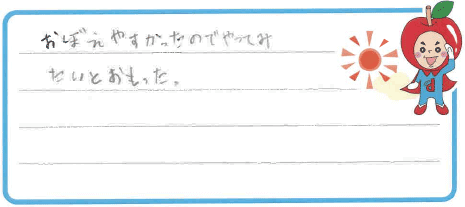 おぼえやすかったのでやってみ
たいとおもった。